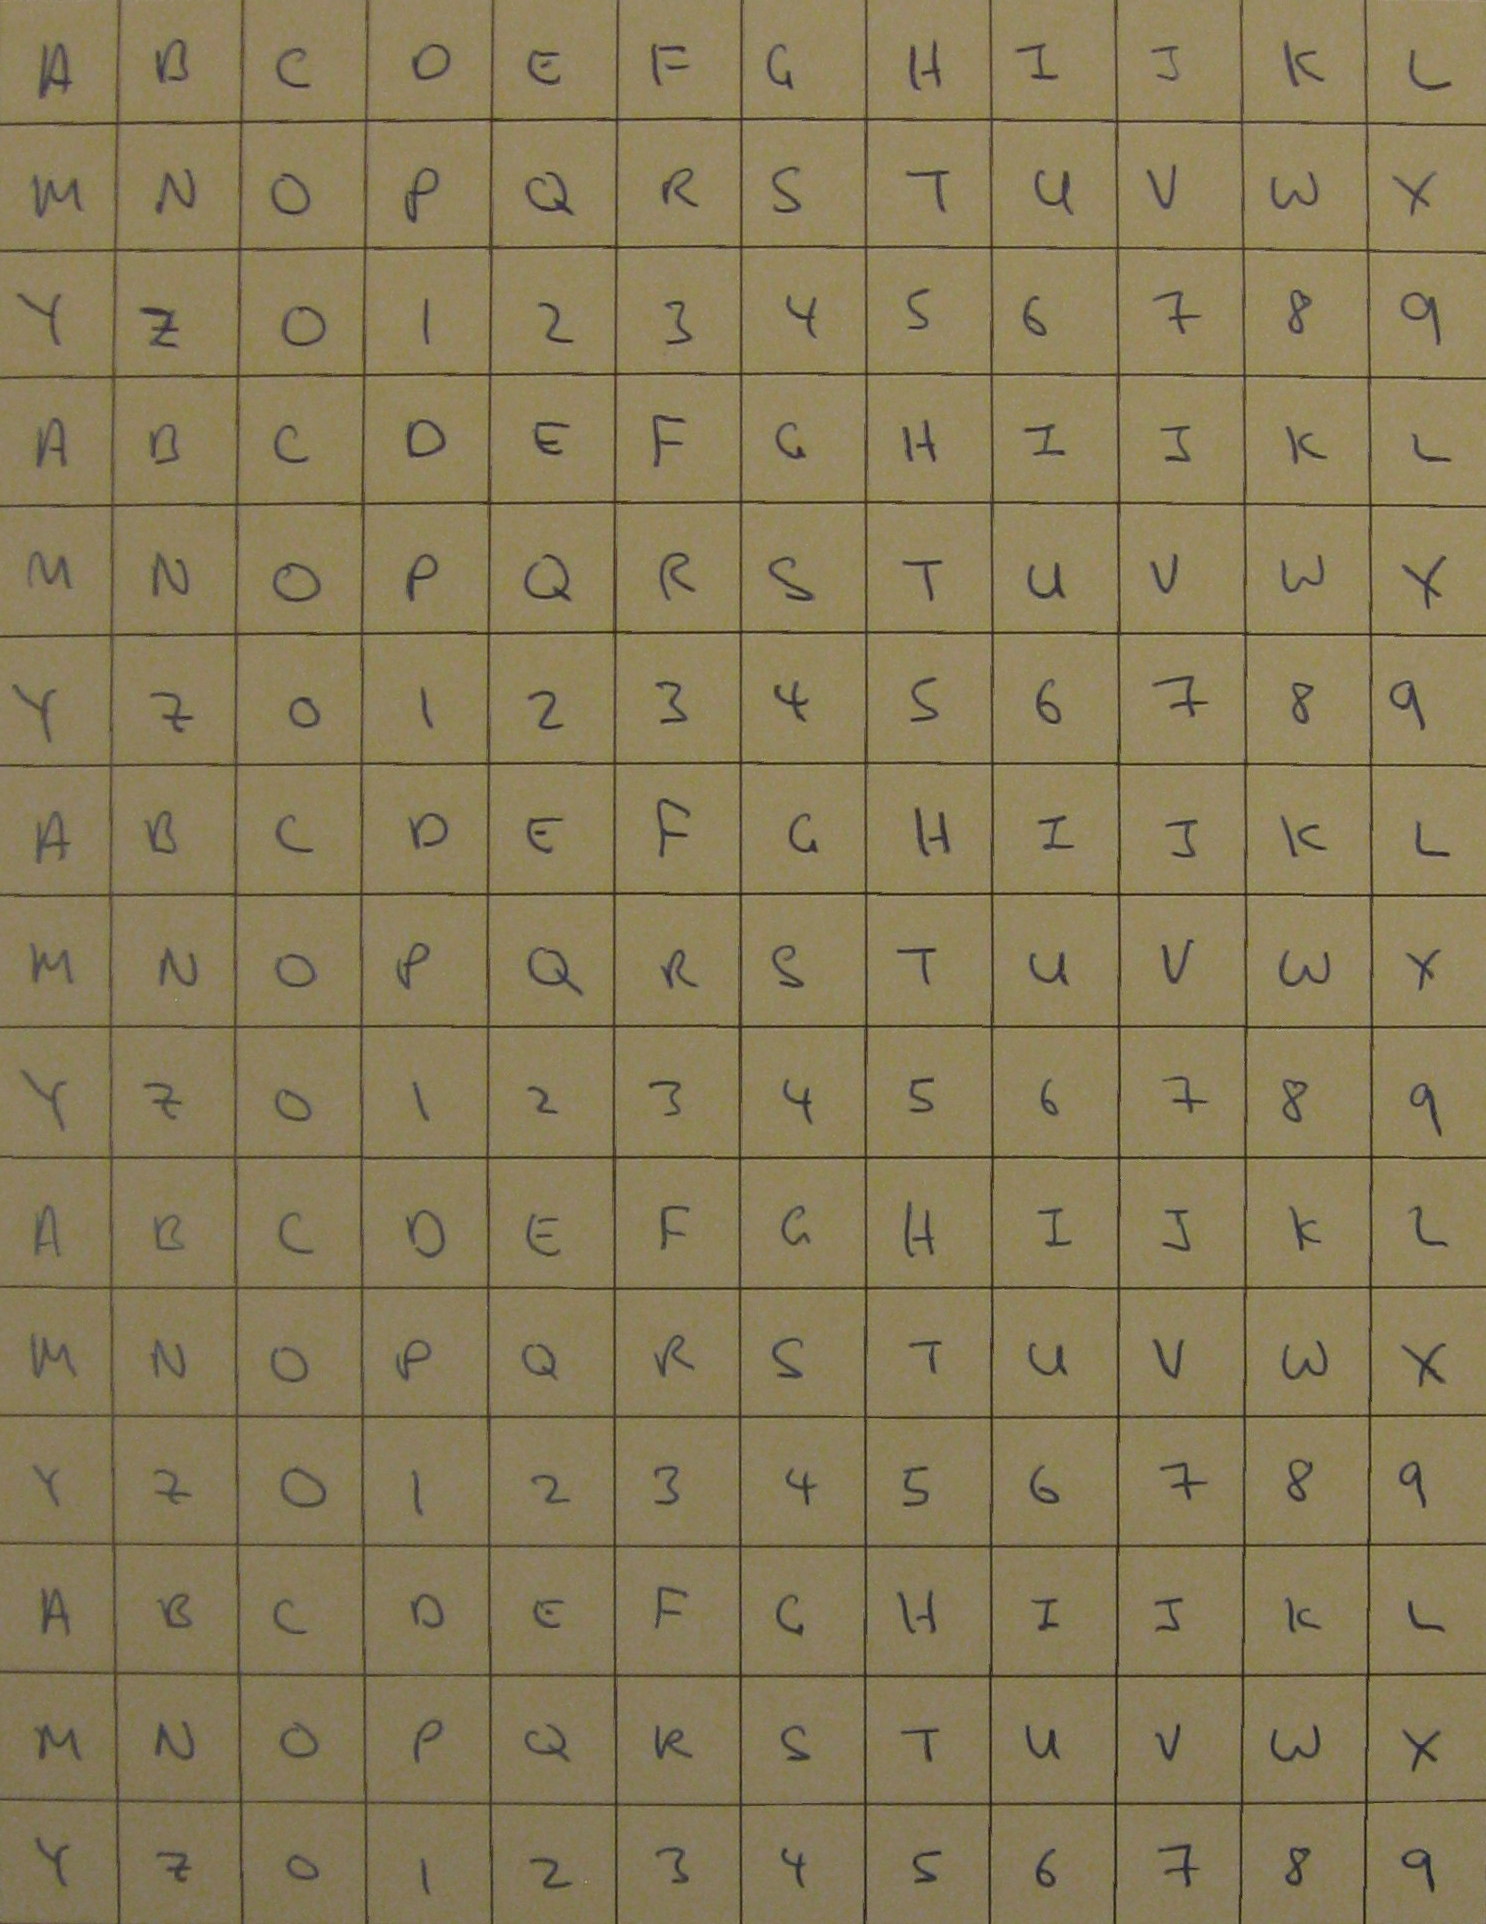 A B C D E F G H I J K L
M N O P Q R S T U V W X
Y Z 0 1 2 3 4 5 6 7 8 9
A B C D E F G H I J K L
M N O P Q R S T U V W X
Y Z 0 1 2 3 4 5 6 7 8 9
A B C D E F G H I J K L
M N O P Q R S T U V W X
Y Z 0 1 2 3 4 5 6 7 8 9
A B C D E F G H I J K L
M N O P Q R S T U V W X
Y Z 0 1 2 3 4 5 6 7 8 9
A B C D E F G H I J K L
M N O P Q R S T U V W X
Y Z 0 1 2 3 4 5 6 7 8 9